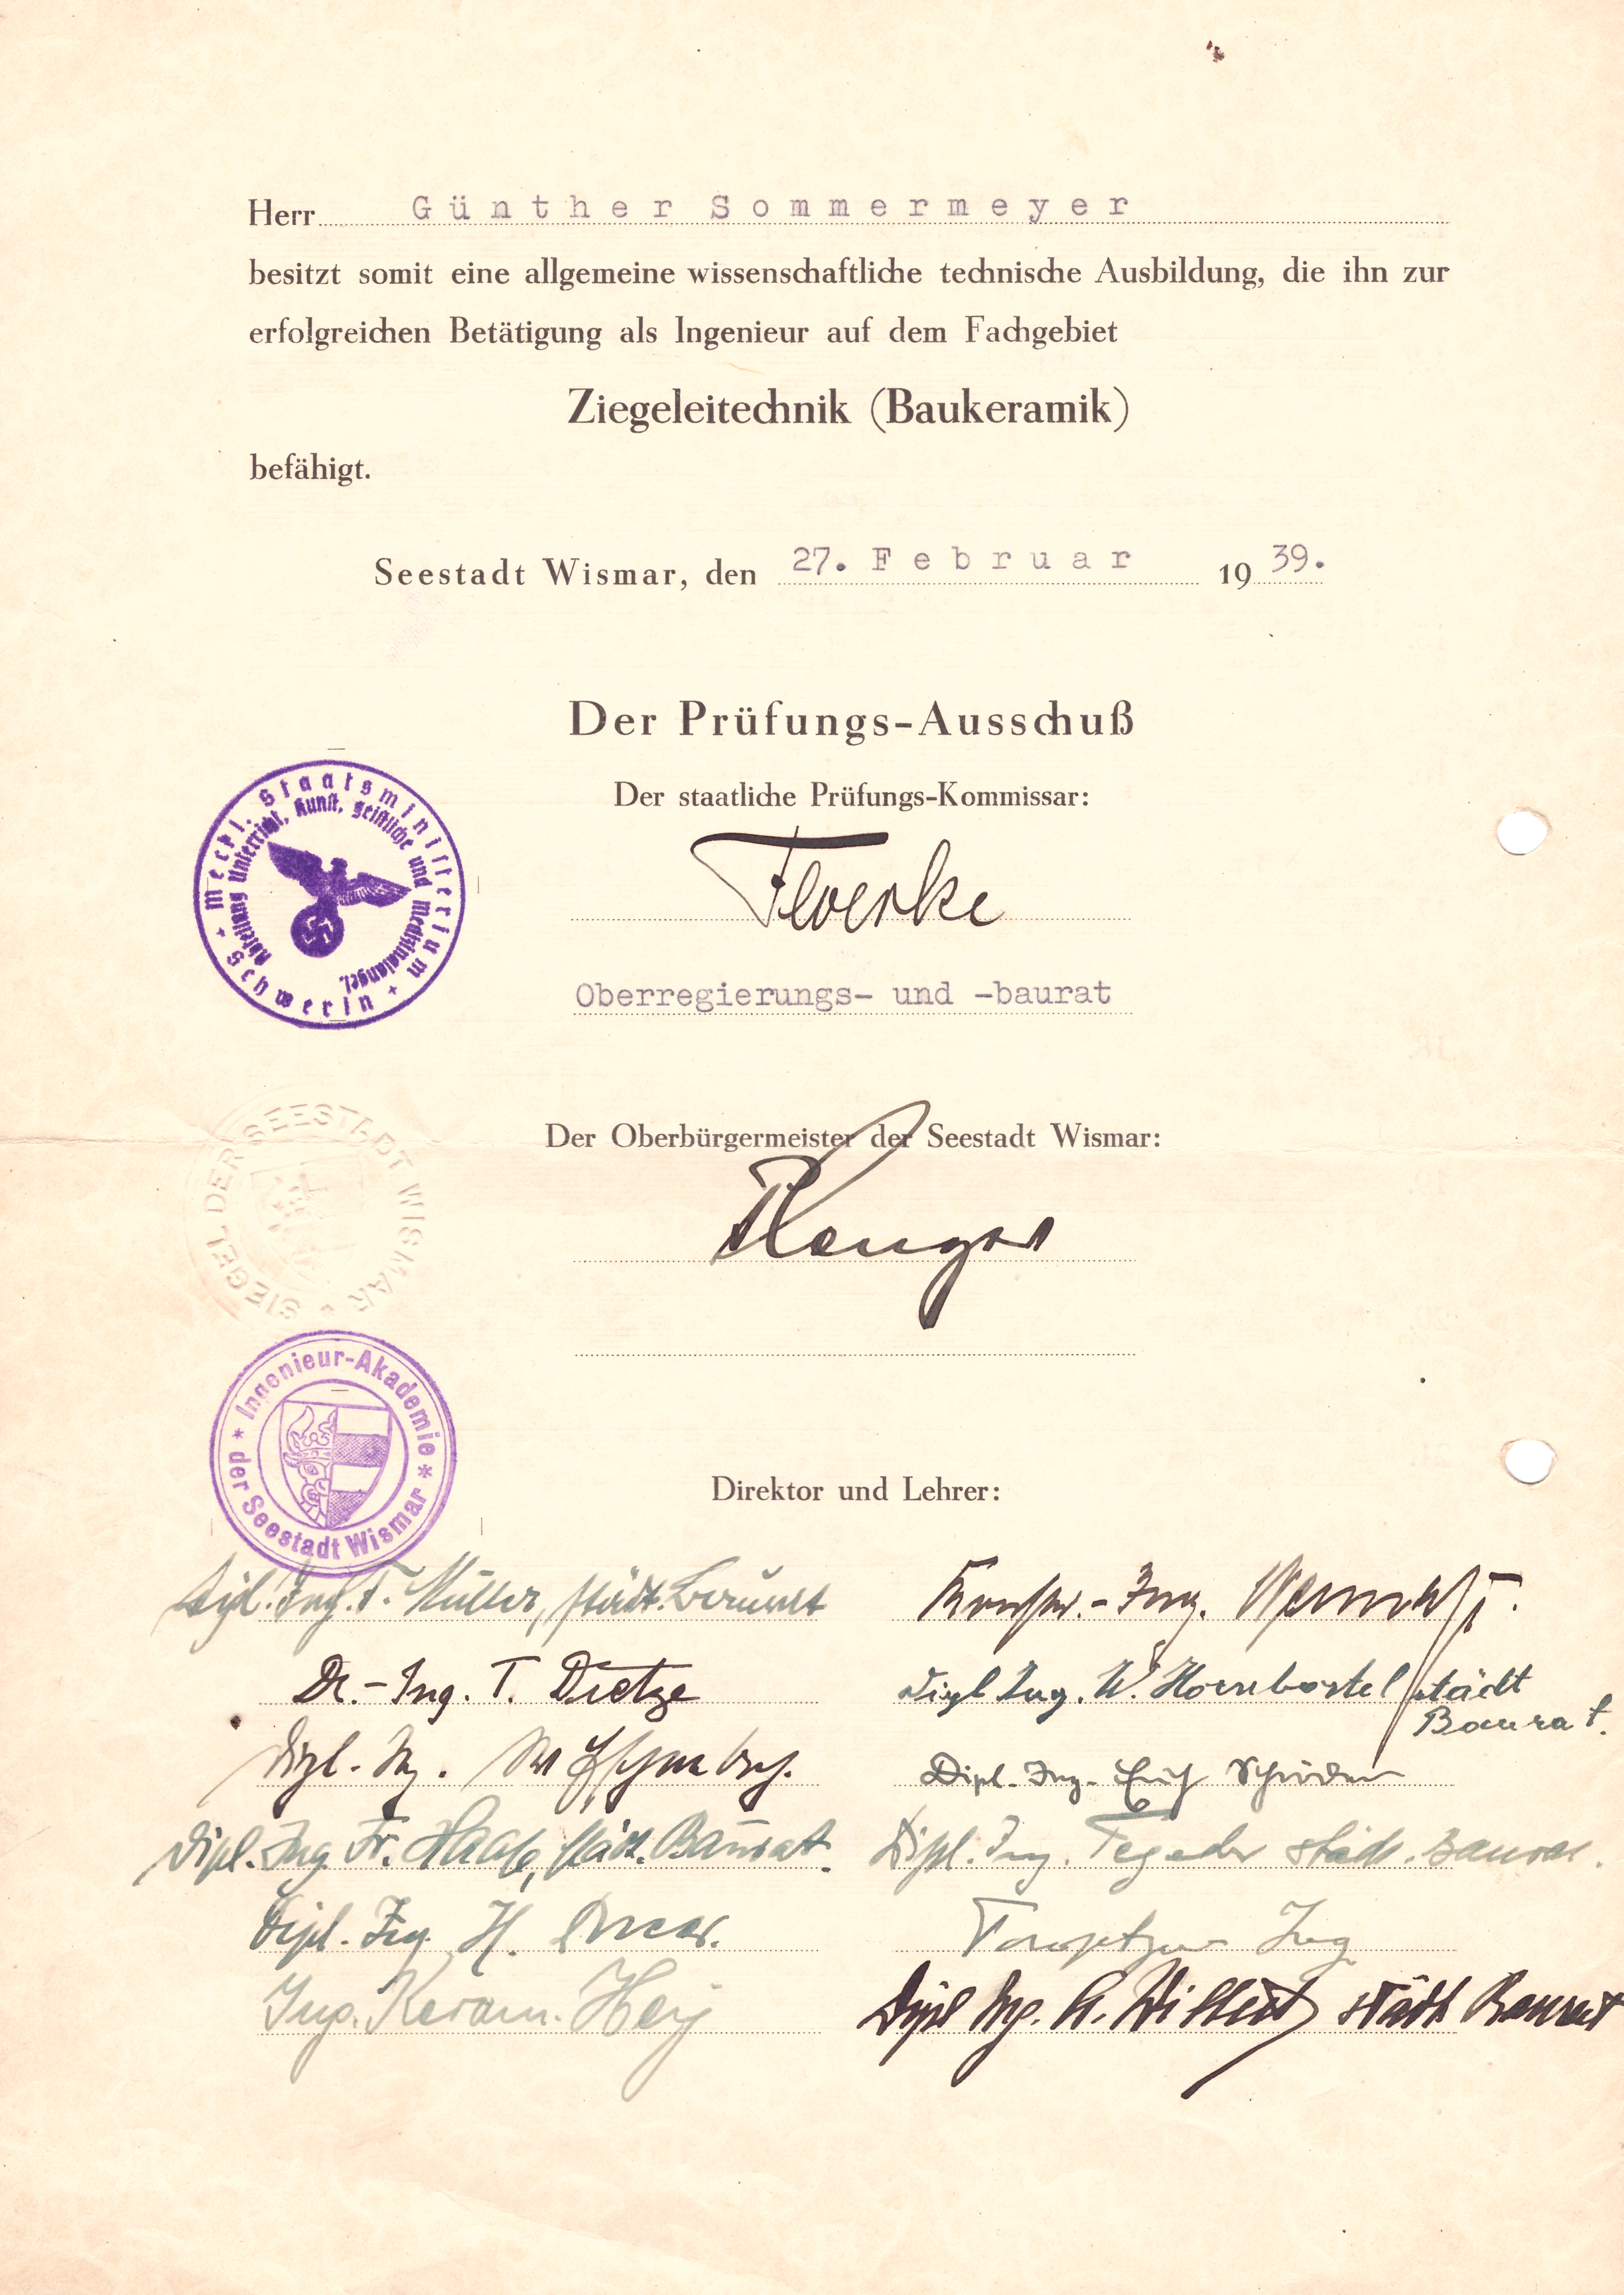 Herr Günther Sommermeyer
besitzt somit eine allgemeine wissenschaftliche technische Ausbildung, die ihn zur
erfolgreichen Betätigung als Ingenieur auf dem Fachgebiet
Ziegeleitechnik (Baukeramik)
befähigt.
Seestadt Wismar, den 27. Februar 1939.
Der Prüfungs-Ausschuß
Der staatliche Prüfungs-Kommissar:
Meckl. Staatsministerium + Schwerin +
Abteilung Unterricht, Kunst, geistliche und Medizinalangel.
Floerke
Oberregierungs- und -baurat
Der Oberbürgermeister der Seestadt Wismar:
SIEGEL DER SEESTADT WISMAR
Ingenieur-Akademie * der Seestadt Wismar *
Direktor und Lehrer:
Dipl. Ing. F. Müller, städt. Baurat
Dr.-Ing. T. Dietze
Dipl. Ing. W. Hornbostel städt
Baurat.
Dipl.-Ing.
Dipl.-Ing. Erich
Dipl. Ing. Fr. Haase, städt. Baurat.
Dipl. Ing. Tegeder städt. Baurat.
Dipl. Ing. H.
Ing.
Ing. Keram. Hey
Dipl Ing. städt. Baurat